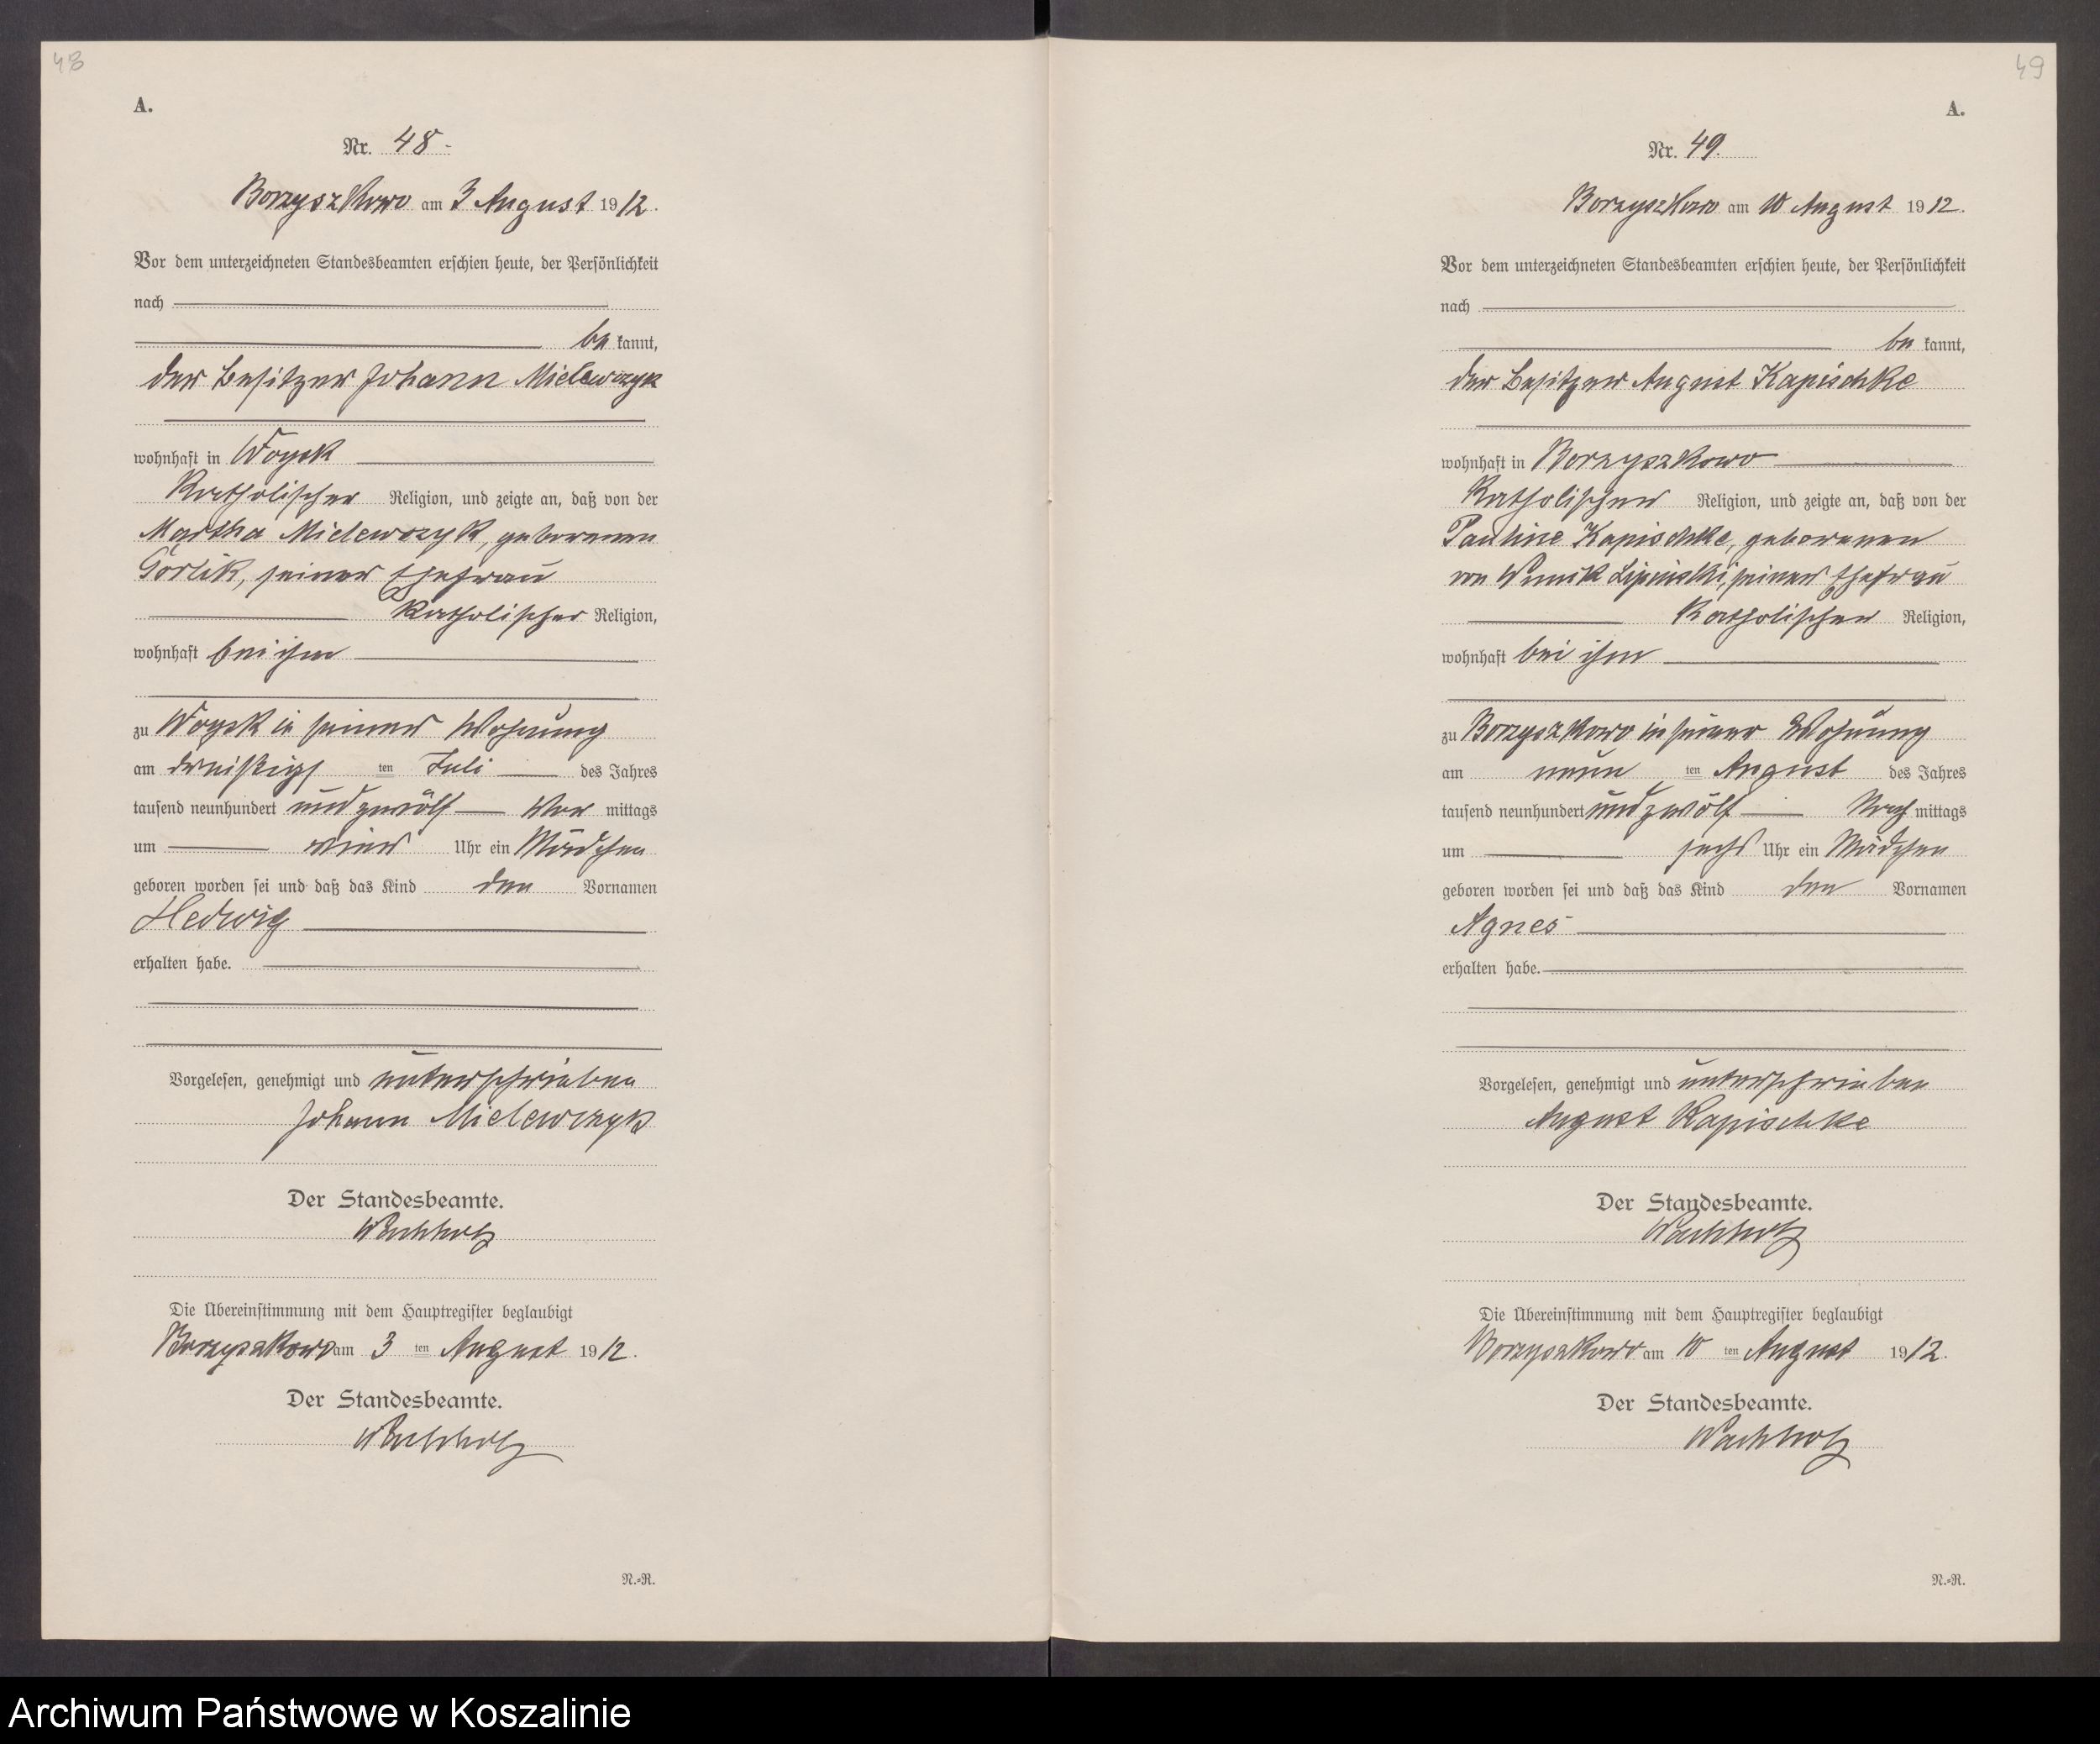 48
A.
Nr. 48.
Borzyszkowo am 3 August 1912.
Vor dem unterzeichneten Standesbeamten erschien heute, der Persönlichkeit
nach
be kannt,
der Besitzer Johann Mielewczyk
wohnhaft in Woysk
Katholischer Religion, und zeigte an, daß von der
Martha Mielewczyk, geborenen
Gorlik, seiner Ehefrau
Katholischer Religion,
wohnhaft bei ihm
zu Woysk in seiner Wohnung
am dreißigs ten Juli des Jahres
tausend neunhundert und zwölf Vor mittags
um Uhr ein Mädchen
geboren worden sei und daß das Kind den Vornamen
Hedwig
erhalten habe.
Vorgelesen, genehmigt und unterschrieben
Johann Mielewczyk
Der Standesbeamte.
Wachholz
Die Übereinstimmung mit dem Hauptregister beglaubigt
Borzyszkowo am 3 ten August 1912.
Der Standesbeamte.
Wachholz
N.-R.
49
A.
Nr. 49.
Borzyszkowo am 10 August 1912.
Vor dem unterzeichneten Standesbeamten erschien heute, der Persönlichkeit
nach
be kannt,
der Besitzer August Kapischke
wohnhaft in Borzyszkowo
Katholischer Religion, und zeigte an, daß von der
Pauline Kapischke, geborenen
von Wnuk Lipinski, seiner Ehefrau
Katholischer Religion,
wohnhaft bei ihm
zu Borzyszkowo in seiner Wohnung
am neun ten August des Jahres
tausend neunhundert und zwölf Nach mittags
um sechs Uhr ein Mädchen
geboren worden sei und daß das Kind den Vornamen
Agnes
erhalten habe.
Vorgelesen, genehmigt und unterschrieben
August Kapischke
Der Standesbeamte.
Wachholz
Die Übereinstimmung mit dem Hauptregister beglaubigt
Borzyszkowo am 10 ten August 1912.
Der Standesbeamte.
Wachholz
N.-R.
Archiwum Państwowe w Koszalinie